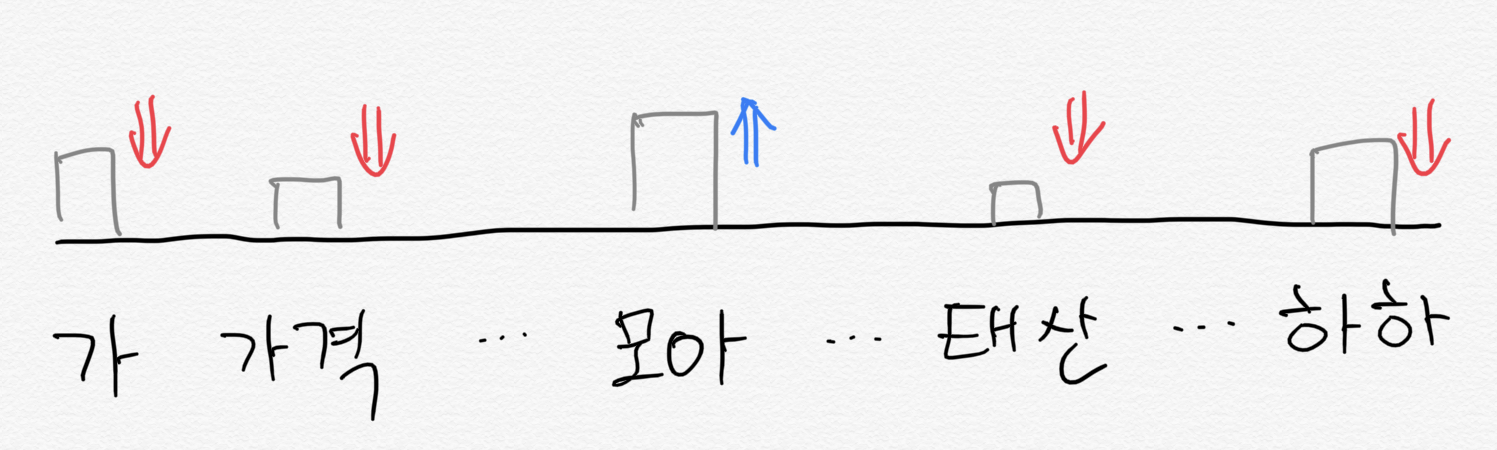 가 가격 ... 모아 ... 태산 ... 하하